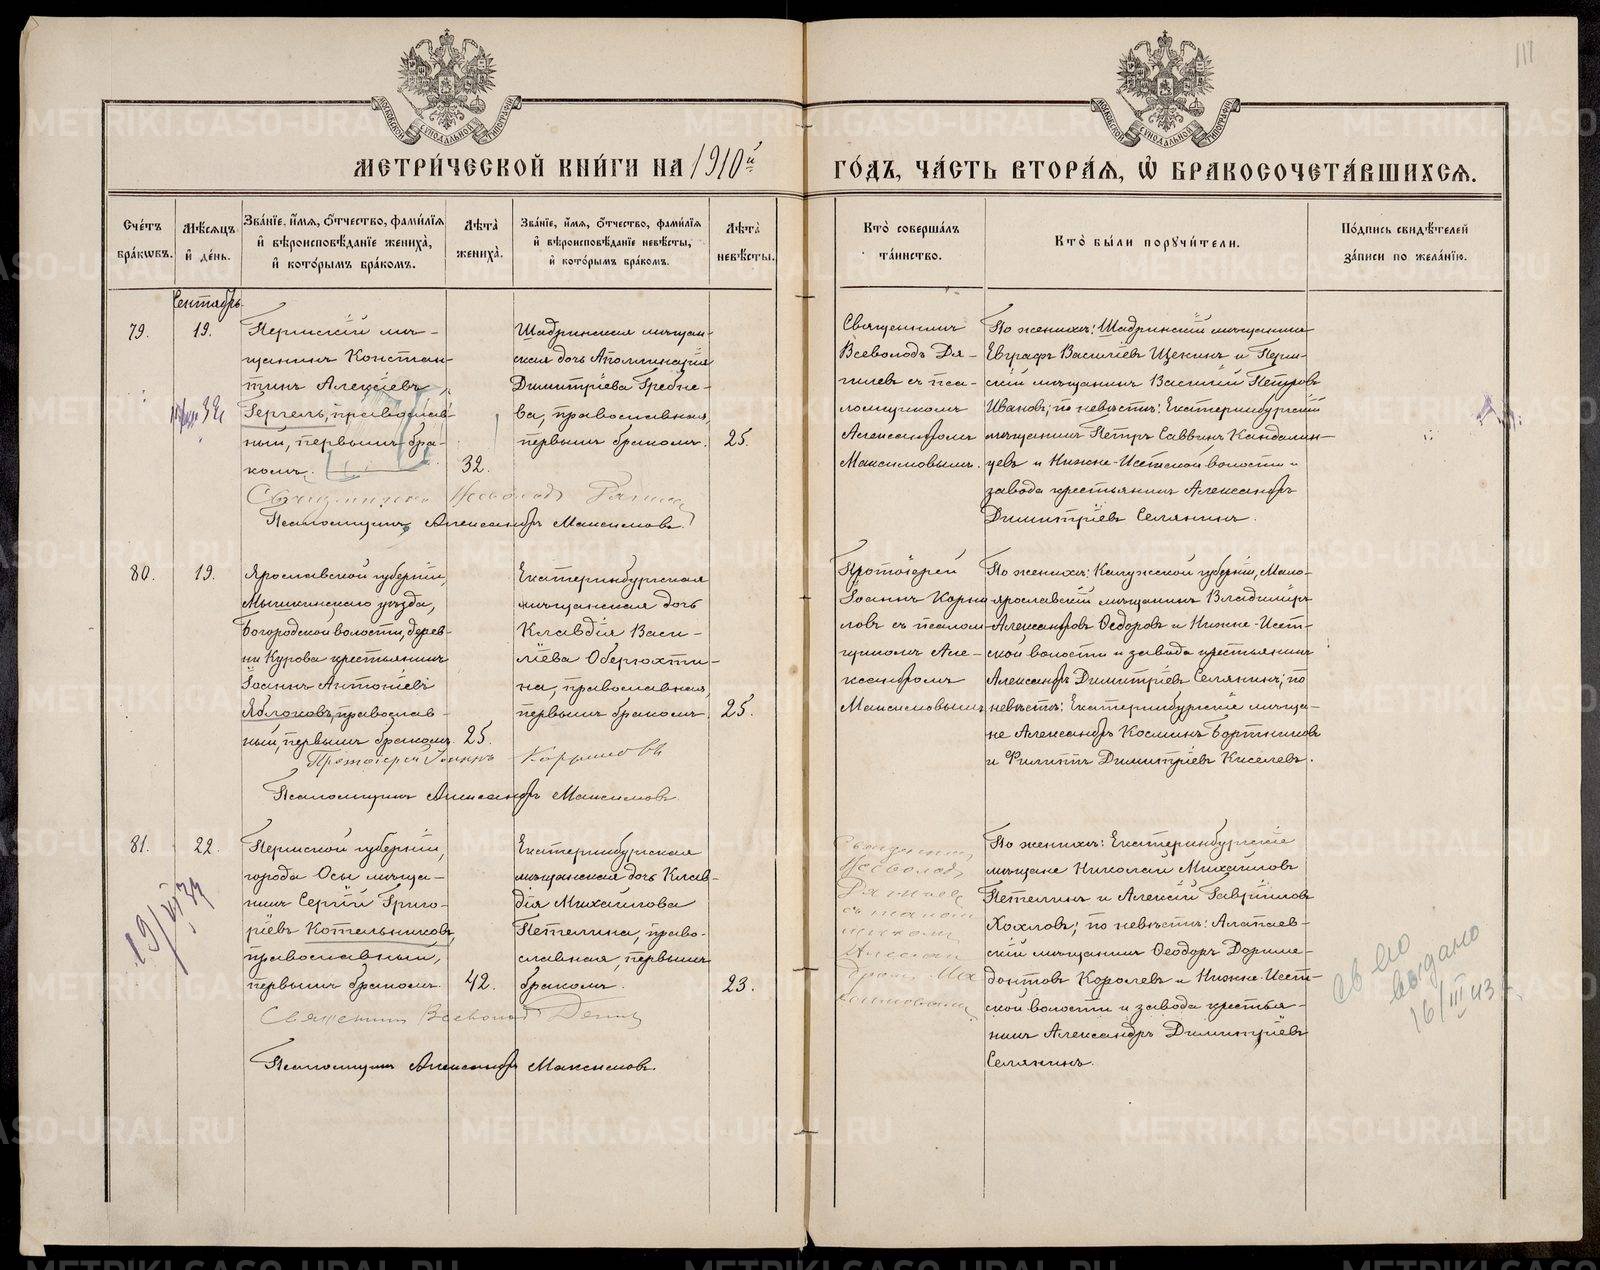 111
МЕТРИ́ЧЕСКОЙ КНИ́ГИ НА 1910й ГО́ДЪ, ЧА́СТЬ ВТОРА́Я, Ѡ҆ БРАКОСОЧЕТА́ВШИХСЯ.
Сче́тъ бра́кѡвъ.
Мѣ́сяцъ и҆ де́нь.
Зва́нїе, и҆́мя, ѻ҆́тчество, фами́лїя и҆ вѣроисповѣ́данїе жениха̀, и҆ кото́рымъ бра́комъ.
Лѣ́та жениха̀.
Зва́нїе, и҆́мя, ѻ҆́тчество, фами́лїя и҆ вѣроисповѣ́данїе невѣ́сты, и҆ кото́рымъ бра́комъ.
Лѣ́та невѣ́сты.
Кто̀ соверша́лъ та́инство.
Кто̀ бы́ли поручи́тели.
По́дпись свидѣ́телей за́писи по жела́нїю.
Сентябрь
79.
19.
Пермскій мѣ-
щанинъ Констан-
тинъ Алексіевъ
Гергель, православ-
ный, первымъ бра-
комъ.
32.
Шадринская мѣщан-
ская дочь Аполлинарія
Димитріева Гребне-
ва, православная,
первымъ бракомъ.
25.
Священникъ
Всеволодъ Дя-
гилевъ съ пса-
ломщикомъ
Александромъ
Максимовымъ.
По женихѣ: Шадринскій мѣщанинъ
Евграфъ Василіевъ Щекинъ и Перм-
скій мѣщанинъ Василій Петровъ
Ивановъ; по невѣстѣ: Екатеринбургскій
мѣщанинъ Петръ Саввинъ Кандалин-
цевъ и Нижне-Исетской волости и
завода крестьянинъ Александръ
Димитріевъ Селянинъ.
Священникъ Всеволодъ
Псаломщикъ Александръ Максимовъ.
80.
19.
Ярославской губерніи,
Мышкинскаго уѣзда,
Богородской волости, дерев-
ни Курова крестьянинъ
Іоаннъ Антоніевъ
Яблоковъ, православ-
ный, первымъ бракомъ.
25.
Екатеринбургская
мѣщанская дочь
Клавдія Васи-
ліева Оберюхти-
на, православная,
первымъ бракомъ.
25.
Протоіерей
Іоаннъ Корни
ловъ съ псалом
щикомъ Але-
ксандромъ
Максимовымъ
По женихѣ: Калужской губерніи, Мало-
ярославскій мѣщанинъ Владиміръ
Александровъ Ѳедоровъ и Нижне-Исет-
ской волости и завода крестьянинъ
Александръ Димитріевъ Селянинъ; по
невѣстѣ: Екатеринбургскіе мѣща-
не Александръ Косминъ Бортниковъ
и Филиппъ Димитріевъ Киселевъ.
Протоіерей Іоаннъ Корниловъ
Псаломщикъ Александръ Максимовъ.
81.
22.
Пермской губерніи,
города Осы мѣща-
нинъ Сергій Григо-
ріевъ Котельниковъ,
православный,
первымъ бракомъ.
42.
Екатеринбургская
мѣщанская дочь Клав-
дія Михаилова
Петелина, право-
славная, первымъ
бракомъ.
23.
Священникъ
Всеволодъ
Дягилевъ
съ псалом
щикомъ
Алексан
дромъ Ма
ксимовымъ
По женихѣ: Екатеринбургскіе
мѣщане Николай Михаиловъ
Петелинъ и Алексій Гавріиловъ
Хохловъ; по невѣстѣ: Алапаев-
скій мѣщанинъ Ѳеодоръ Дориме-
донтовъ Королевъ и Нижне-Исет-
ской волости и завода крестья-
нинъ Александръ Димитріевъ
Селянинъ.
Священникъ Всеволодъ
Псаломщикъ Александръ Максимовъ.
19/VI 39
выдано
16/III 43 г.